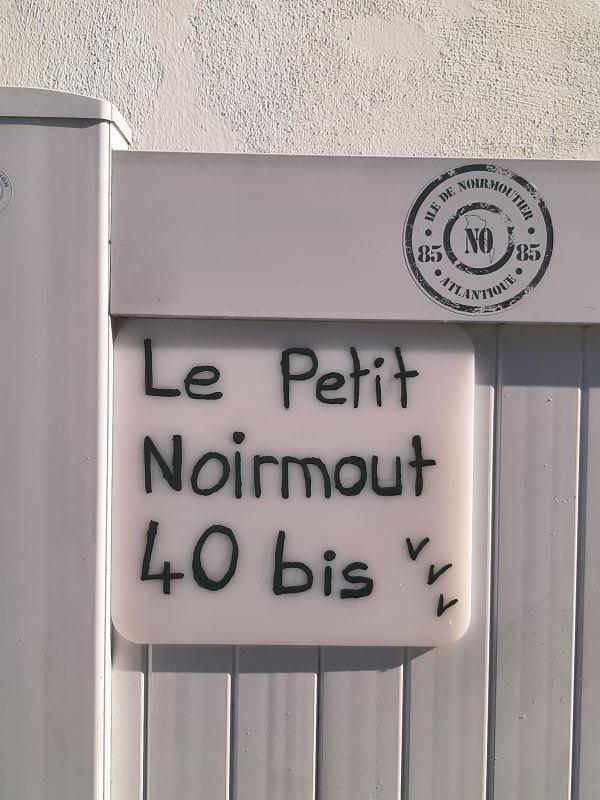 ILE DE NOIRMOUTIER
85 NO 85
ATLANTIQUE
Le Petit
Noirmout
40 bis